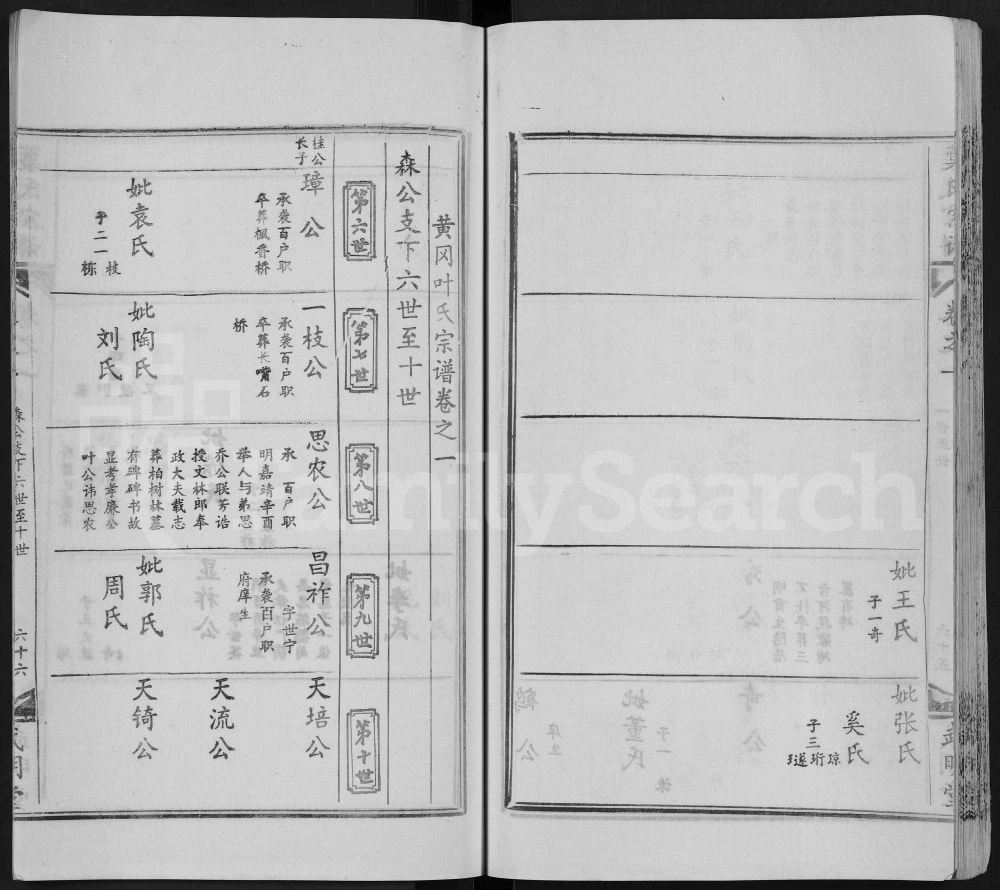 妣王氏
子一奇
妣张氏
奚氏
子三
琼珩璲
黄冈叶氏宗谱卷之一
森公支下六世至十世
第六世
佳公
长子
璋公
承袭百户职
卒葬枫香桥
妣袁氏
子二一
枝
栋
第七世
一枝公
承袭百户职
卒葬长嘴石
桥
妣陶氏
刘氏
第八世
思农公
承 百户职
明嘉靖辛酉
举人与弟思
乔公联芳诰
授文林郎奉
政大夫载志
葬柏树林墓
有碑碑书故
显考孝廉公
叶公讳思农
第九世
昌祚公
字世宁
承袭百户职
府庠生
妣郭氏
周氏
第十世
天培公
天流公
天锜公
森公支下六世至十世
六十六
FamilySearch